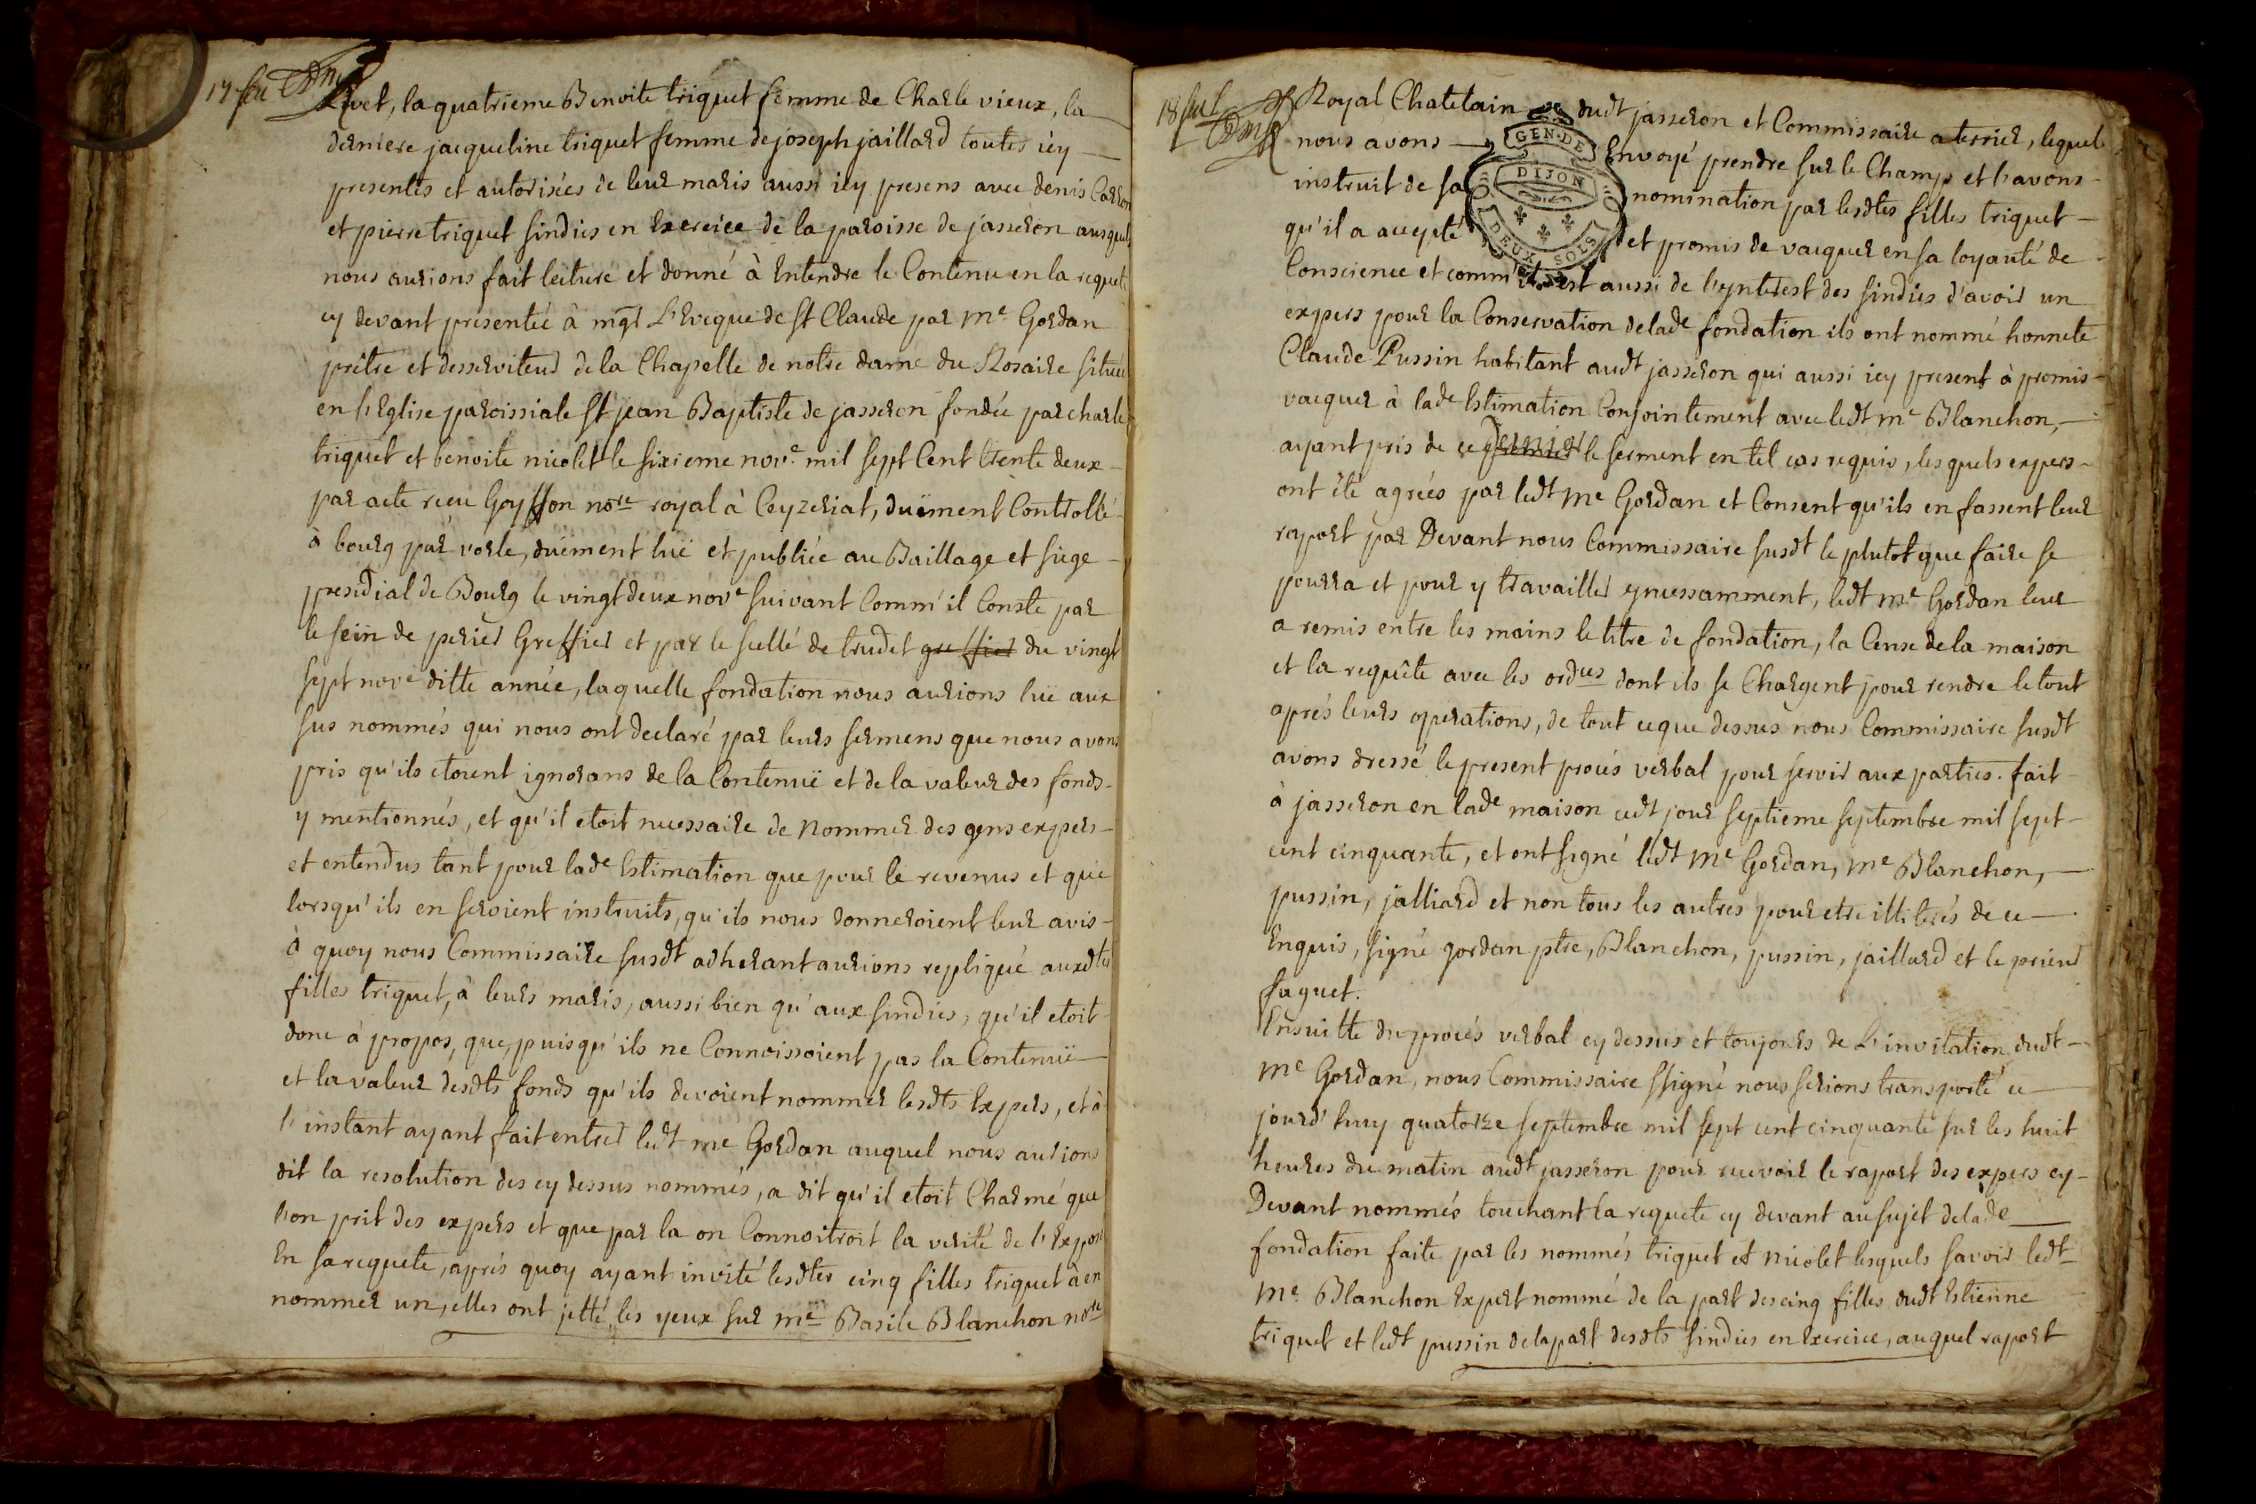 17 feu
Livet, la quatrieme Benoite triquet femme de Charle vieux, la
derniere jacqueline triquet femme de joseph jaillard toutes icy
presentes et autorisées de leur maris aussi icy presens avec denis Carron
et pierre triquet sindics en Exercice de la paroisse de jasseron ausquels
nous aurions fait lecture et donné à Entendre le Contenu en la requete
cy devant presentée à mgr L'Eveque de St Claude par Me Gordan
prêtre et desserviteur de la Chapelle de notre dame du Rosaire située
en l'Eglise paroissiale St jean Baptiste de jasseron fondée par charle
triquet et benoite nicolet le sixieme nove mil sept Cent trente deux
par acte recu Goyffon nore royal à Ceyzeriat, duëment Controllé
à bourg par vorle, duëment luë et publiée au Baillage et siege
presidial de Bourg le vingt deux nove suivant Comm'il Conste par
le sein de perier Greffier et par le scellé de trudet greffier du vingt
sept nove ditte année, laquelle fondation nous aurions luë aux
sus nommés qui nous ont declaré par leurs sermens que nous avons
pris qu'ils etoient ignorans de la Contenuë et de la valeur des fonds
y mentionnés, et qu'il etoit necessaire de Nommer des gens expers
et entendus tant pour lade Estimation que pour le revenus et que
lorsqu'ils en seroient instruits, qu'ils nous donneroient leur avis
à quoy nous Commissaire susdt adherant aurions repliqué auxdtes
filles triquet, à leurs maris, aussi bien qu'aux sindics, qu'il etoit
donc à propos, que, puisqu'ils ne Connoissoient pas la Contenuë
et la valeur desdts fonds qu'ils devoient nommer lesdts Expers, et à
l'instant ayant fait entrer ledt me Gordan auquel nous aurions
dit la resolution des cy dessus nommés, a dit qu'il etoit Charmé que
l'on prit des expers et que par la on Connoitroit la verité de l'Exposé
En sa requete, après quoy ayant invité lesdtes cinq filles triquet à en
nommer un, elles ont jetté les yeux sur me Basile Blanchon nore
18 feul
Royal Chatelain dudt jasseron et Commissaire a terrier, lequel
nous avons Envoyé prendre sur le Champ et l'avons
instruit de sa nomination par lesdtes filles triquet
qu'il a accepté et promis de vacquer en sa loyauté de
GEN. DE
DIJON
DEUX SOLS
Conscience et comm'il est aussi de l'ynterest des sindics d'avoir un
expers pour la Conservation delade fondation ils ont nommé honnete
Claude Pussin habitant audt jasseron qui aussi icy present à promis
vacquer à lade Estimation Conjointement avec ledt me Blanchon,
ayant pris de ce dernier le serment en tel cas requis, lesquels expers
ont été agréés par ledt Me Gordan et Consent qu'ils en fassent leur
raport par Devant nous Commissaire susdt le plutot que faire se
pourra et pour y travailler yncessamment, ledt me Gordan leur
a remis entre les mains le titre de fondation, la Cense de la maison
et la requête avec les ordces dont ils se Chargent pour rendre le tout
aprés leurs operations, de tout ce que dessus nous Commissaire susdt
avons dressé le present procés verbal pour servir aux parties. fait
à jasseron en lade maison cedt jour septieme septembre mil sept
cent cinquante, et ont signé ledt Me Gordan, me Blanchon,
pussin, jalliard et non tous les autres pour etre illiterés de ce
Enquis, signé gordan ptre, Blanchon, pussin, jaillard et le prieur
faguet.
Ensuitte du procés verbal cy dessus et toujours de L'invitation dudt
Me Gordan, nous Commissaire ssigné nous serions transporté ce
jourd'huy quatorze septembre mil sept cent cinquante sur les huit
heures du matin audt jasseron pour recevoir le raport des expers cy
Devant nommés touchant la requete cy devant au sujet delade
fondation faite par les nommés triquet et nicolet lesquels savoir ledt
Me Blanchon Expert nommé de la part des cinq filles dudt Estienne
triquet et ledt pussin de la part desdts sindics en Exercice, auquel raport